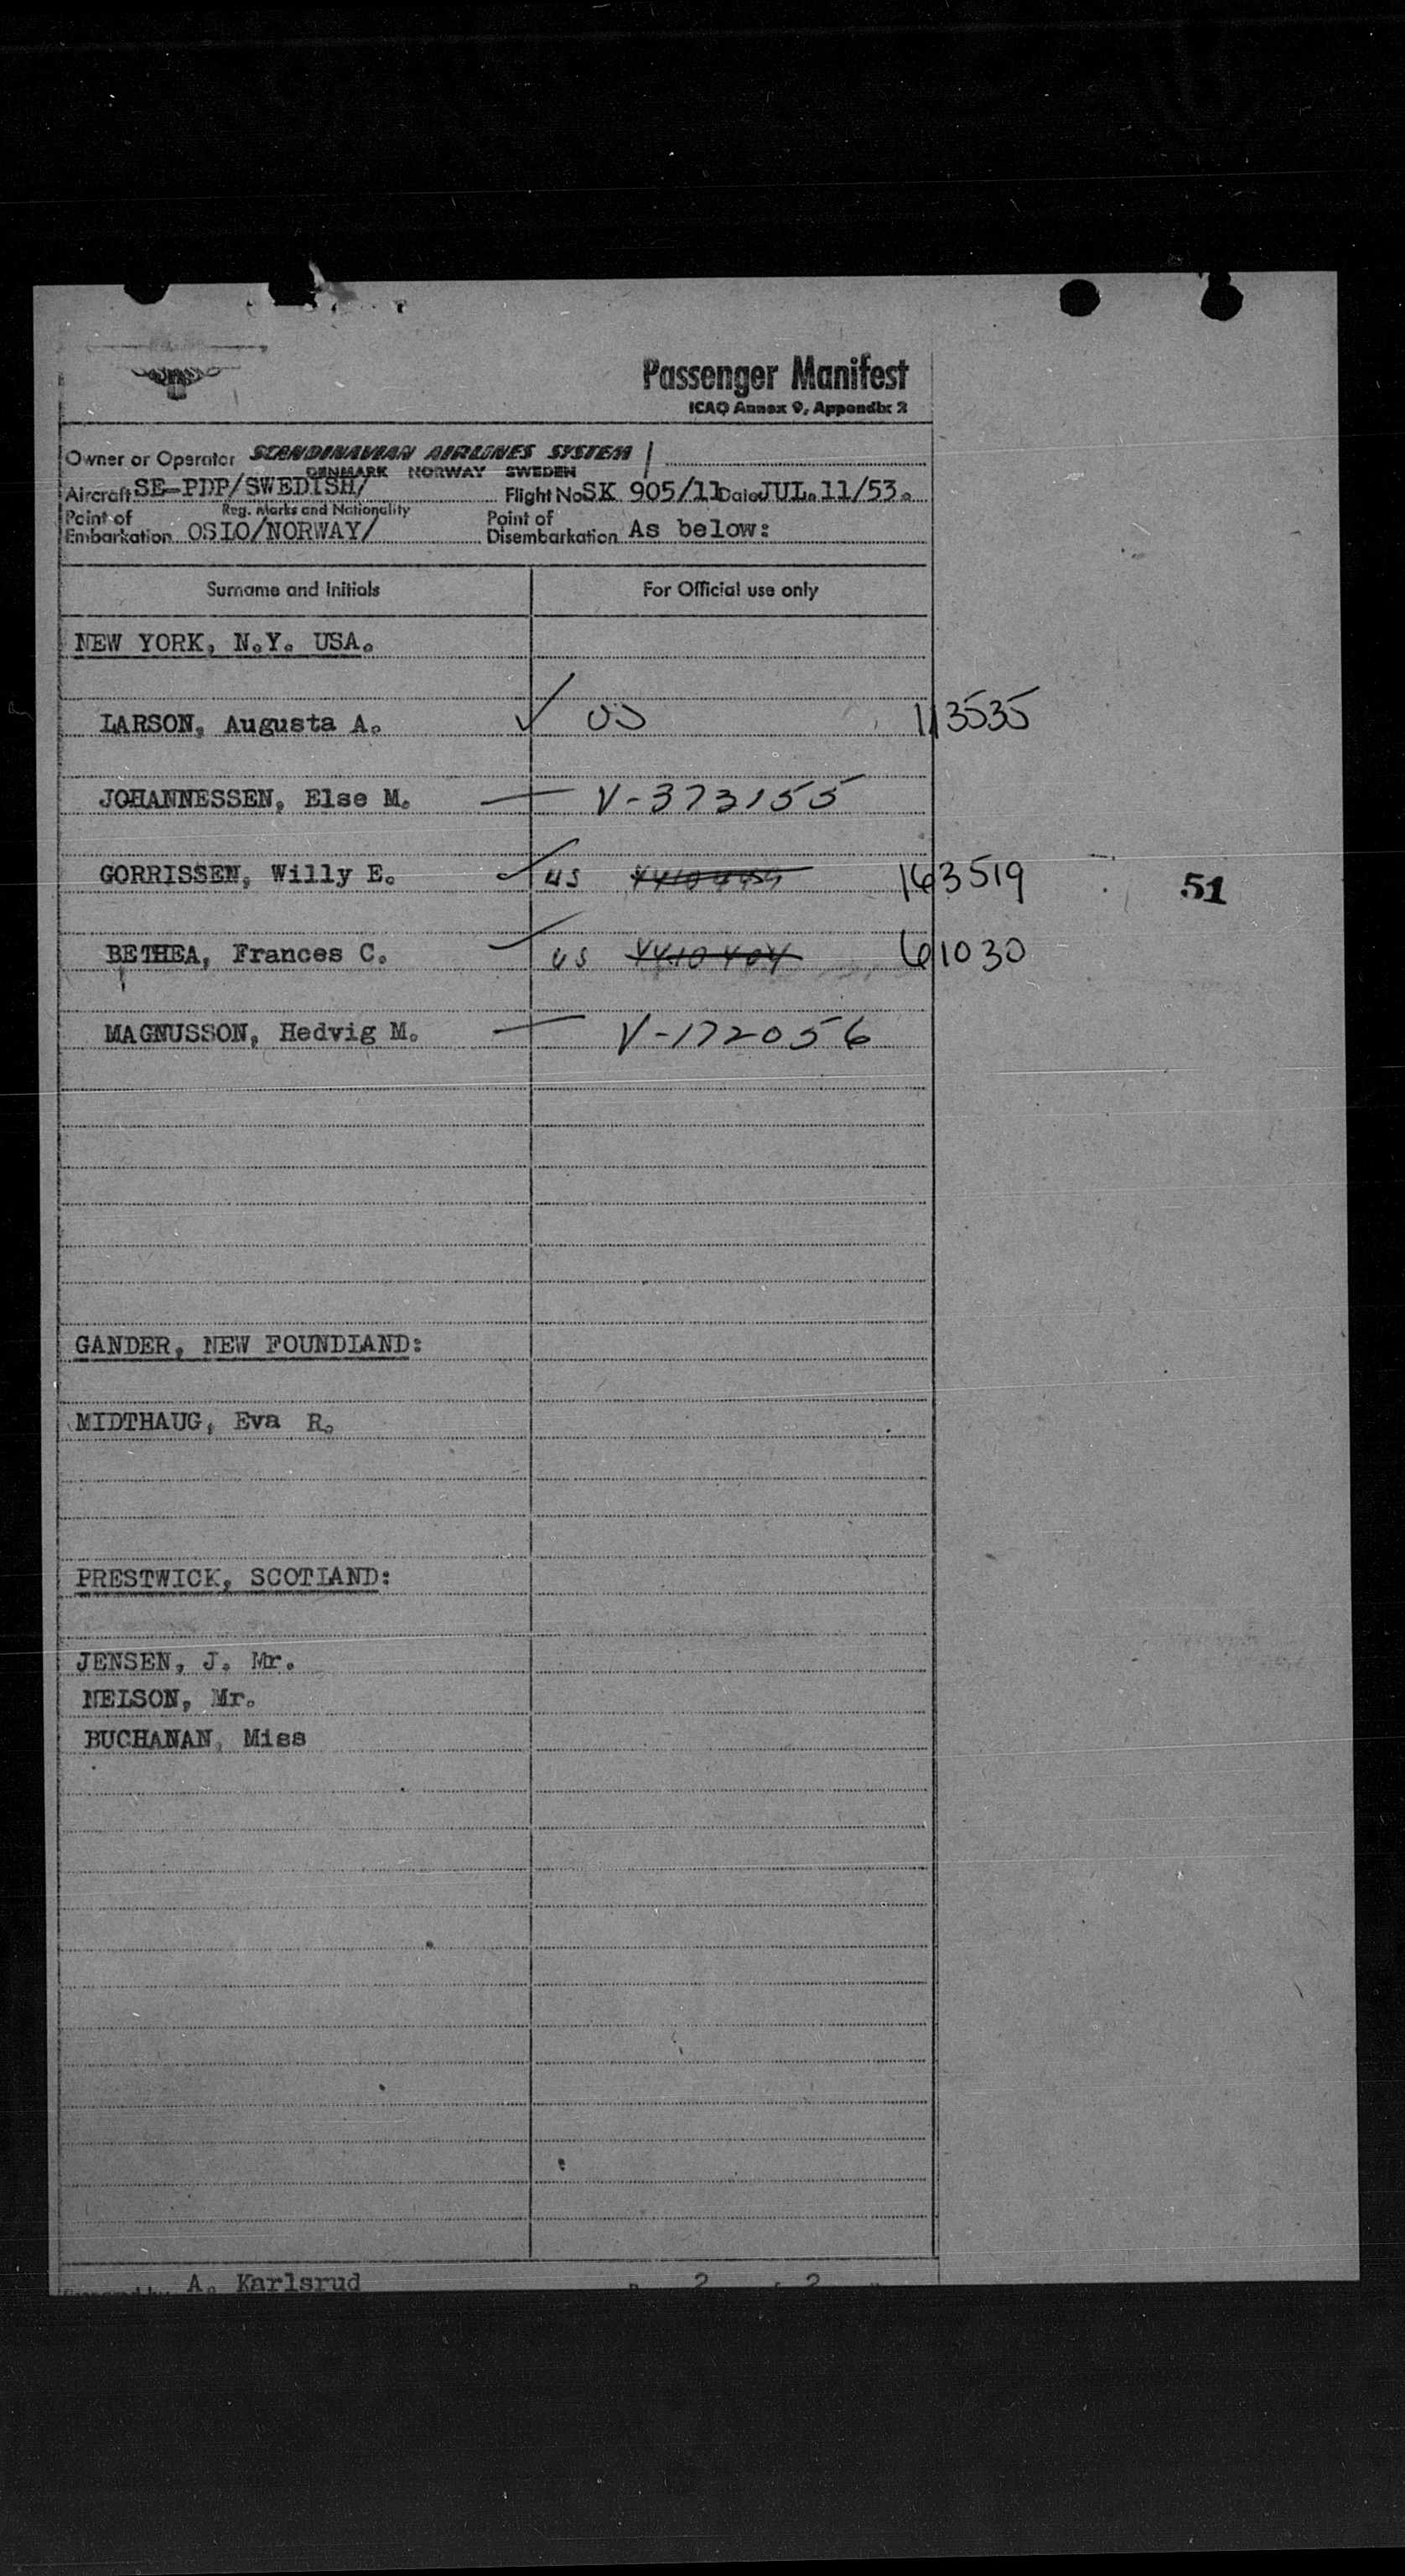 Passenger Manifest
ICAO Annex 9, Appendix 2
Owner or Operator SCANDINAVIAN AIRLINES SYSTEM
DENMARK NORWAY SWEDEN
Aircraft SE-PDP/SWEDISH/ Flight No SK 905/11 Date JUL. 11/53.
Reg. Marks and Nationality
Point of Embarkation OSLO/NORWAY/ Point of Disembarkation As below:
Surname and Initials For Official use only
NEW YORK, N.Y. USA.
LARSON, Augusta A. ✓ US 113535
JOHANNESSEN, Else M. — V-373155
GORRISSEN, Willy E. ✓ US 163519
51
BETHEA, Frances C. ✓ US 4410404 61030
MAGNUSSON, Hedvig M. — V-172056
GANDER, NEW FOUNDLAND:
MIDTHAUG, Eva R.
PRESTWICK, SCOTLAND:
JENSEN, J. Mr.
NELSON, Mr.
BUCHANAN, Miss
A. Karlsrud 2 2